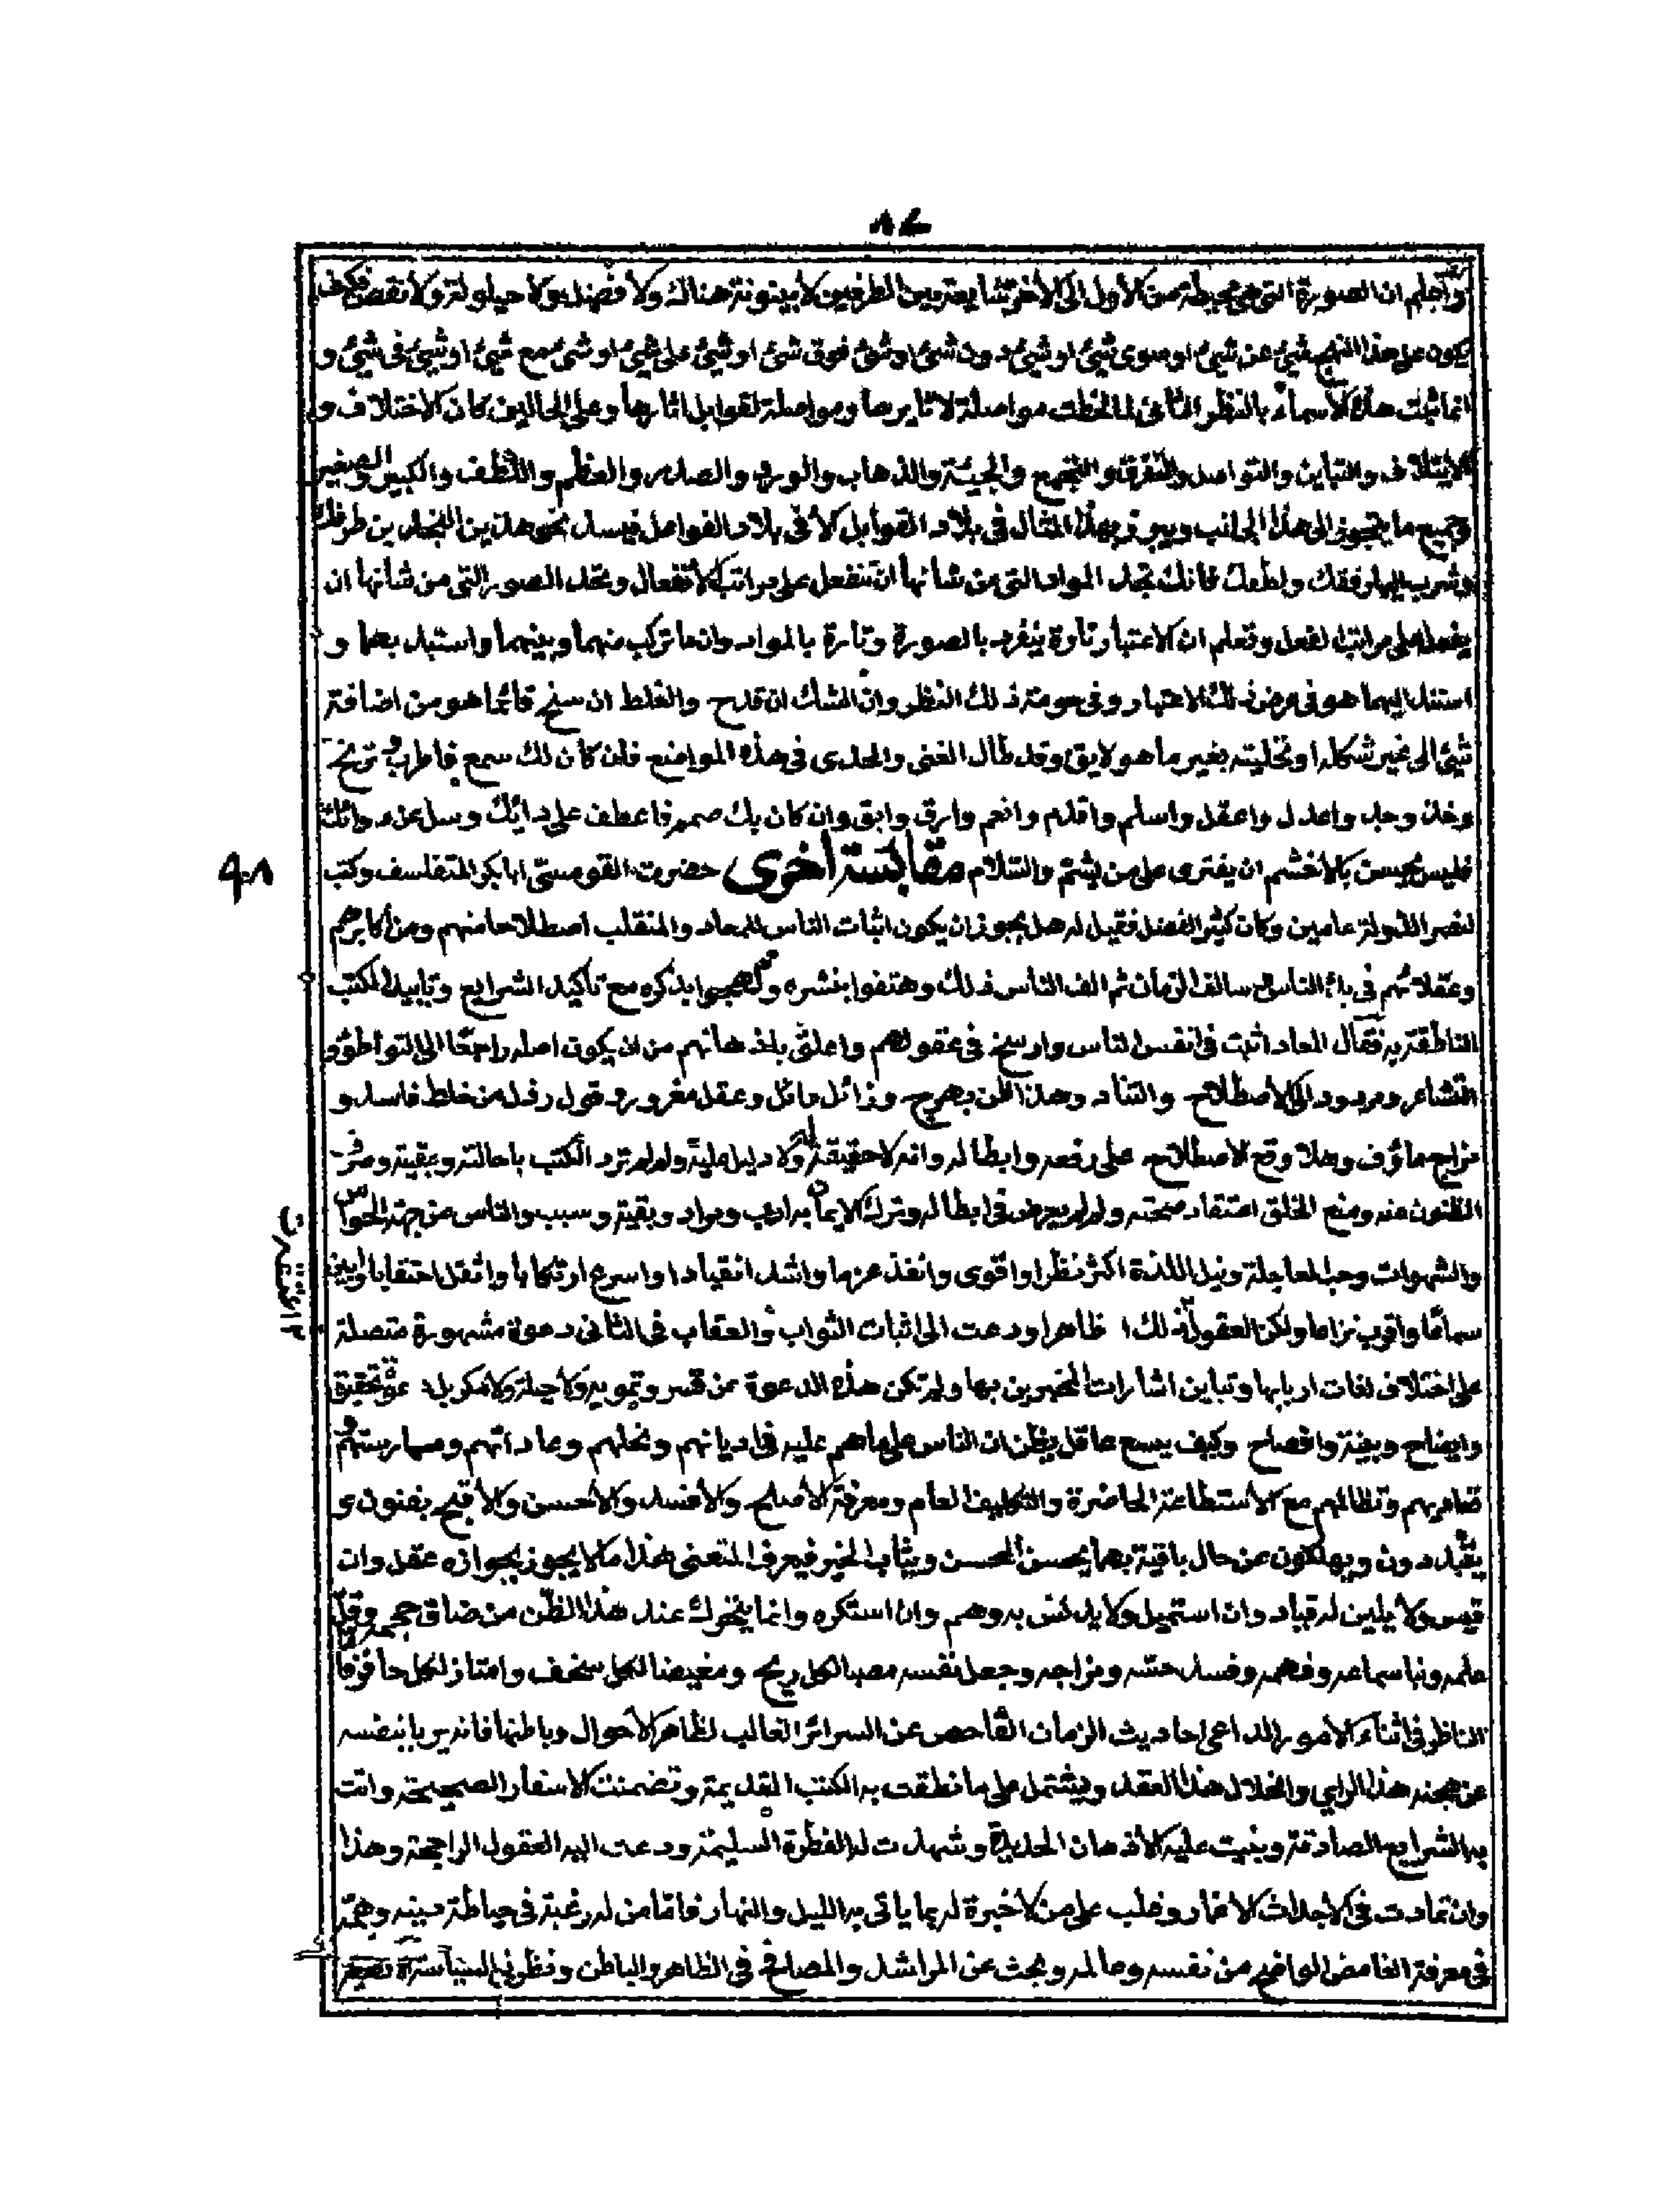 ٨٤
واعلم ان الصورة التى هى محيطة من الأول الى الأخر شايعة بين الطرفين لا بينونة هناك ولا فصل ولا حيلولة ولا نقص فكيف
يكون على هذا النهج شئ عن شئ او سوى شئ او شئ دون شئ او شئ فوق شئ او شئ على شئ او شئ مع شئ او شئ فى شئ و
انما ثبتت هذه الأسماء بالنظر الثانى لما لحظت مواصلة لاثايرها ومواصلة لقوابل اثارها وعلى الحالين كان الاختلاف و
الايتلاف والتباين والتواصل والتفرق والتجمع والجيئة والذهاب والورد والصدر والعظم واللطف والكبير والصغير
وجميع ما يتجوز الى هذا الجانب ويبرز بهذا المثال فى بلاد القوابل لا فى بلاد الفواعل فيسدد نحو هذين النجدين طرفك
وشرب اليها رفقك ولطفك فانك تجد المواد التى من شانها ان تنفعل على مراتب الانفعال وتجد الصور التى من شانها ان
يفعل على مراتب الفعل وتعلم ان الاعتبار تارة ينفرد بالصورة وتارة بالمواد وان ما تركب منهما وبينهما واستبد بعما و
استند اليهما هو فى عرض ذلك الاعتبار وفى حومة ذلك النظر وان الشك ان قدح والغلط ان سنح فانما هو من اضافة
شئ الى غير شكله او تحليته بغير ما هو لايق وقد طال الغنى والحدى فى هذه المواضع فان كان لك سمع فاطرب و ترنح
وخذ وجد واعدل واعقل واسلم واقدم وانعم وارق وابق وان كان بك صمم فاعطف على دائك وسل عن دوائك
فليس بحسن بالأخشم ان يفترى على من يشتم والسلام مقابسة أخرى حضرت القومسى ابا بكر المتفلسف وكتب
لنصر الدولة عامين وكان كثير الفضل فقيل له هل يجوز ان يكون اثبات الناس للمعاد والمنقلب اصطلاحا منهم ومن أكابرهم
وعقلائهم فى بدء الناس و سالف الزمان ثم الف الناس ذلك وهتفوا بنشره ولهجوا بذكره مع تأكيد الشرايع وتاييد الكتب
الناطقة به فقال المعاد اثبت فى انفس الناس وارسخ فى عقولهم واعلق باذهانهم من ان يكون اصله راجعا الى التواطؤ و
التشاعر ومردود الى الاصطلاح والتناد وهذا ظن بهرج وزائل مائل وعقل مغرور وقول رذل من خلط فاسد و
مزاج ماؤف وهلا وقع الاصطلاح على رفعه وابطاله وانه لا حقيقة له ولا دليل عليه ولو لم ترد الكتب باحالته وبقيته وصرف
الظنون عنه ومنع الخلق اعتقاد صحته ولو لم يعرض فى ابطاله وترك الايماء به ادب ومراد وبقية وسبب والناس من جهة الحواس
والشهوات وحب العاجلة ونيل اللذة اكثر نظرا واقوى وانفذ عزما واشد انقيادا واسرع ارتكابا واثقل احتقابا وابين
سماعا واقرب نزاعا ولكن العقول ذلك ظاهرا ودعت الى اثبات الثواب والعقاب فى الثانى دعوة مشهورة متصلة
على اختلاف لغات اربابها وتباين اشارات المخبرين بها ولم تكن هذه الدعوة عن قسر وتمويه ولا حيلة ولا مكر بل عن تحقيق
وايضاح وبينة وافصاح وكيف يسع عاقل يظن ان الناس على ما هم عليه فى اديانهم ونحلهم وعاداتهم وممارستهم و
تضاربهم وتظالمهم مع الاستطاعة الحاضرة والتكليف العام ومعرفة الأصلح والأفسد والأحسن والأقبح يفنون و
يتبددون ويهلكون عن حال باقية بهما يحسن المحسن ويثاب الخير فيعرف المتعنى هذا ما لا يجوز بجوازه عقل وان
قيس ولا يلين له قياد وان استميل ولا يدنس به وهم وان استكره وانما يتحرك عند هذا الظن من ضاق حجره وقل
علمه ونبا سماعه وفهمه وفسد حسه ومزاجه وجعل نفسه مصبا لكل ريح ومغيضا لكل سخف وامتاز لكل حافز فاما
الناظر فى اثناء الأمور الداعى احاديث الزمان الفاحص عن السرائر الغالب لظاهر الأحوال وباطنها فانه يربا بنفسه
عن هجنة هذا الراي وانحلال هذا العقد ويشتمل على ما نطقت به الكتب القديمة وتضمنت الاسفار الصحيحة واتت
به الشرايع الصادقة وبنيت عليه الأذهان الحديدة وشهدت له الفطرة السليمة ودعت اليه العقول الراجحة وهذا
وان تمادت فى الأجداث الاغمار وغلب على من لا خبرة له بما ياتى به الليل والنهار فاما من له رغبة فى حياطة دينه وهمة
فى معرفة الغامض الواضح من نفسه وعالمه وبحث عن المراشد والمصالح فى الظاهر والباطن ونظر فى السياسة